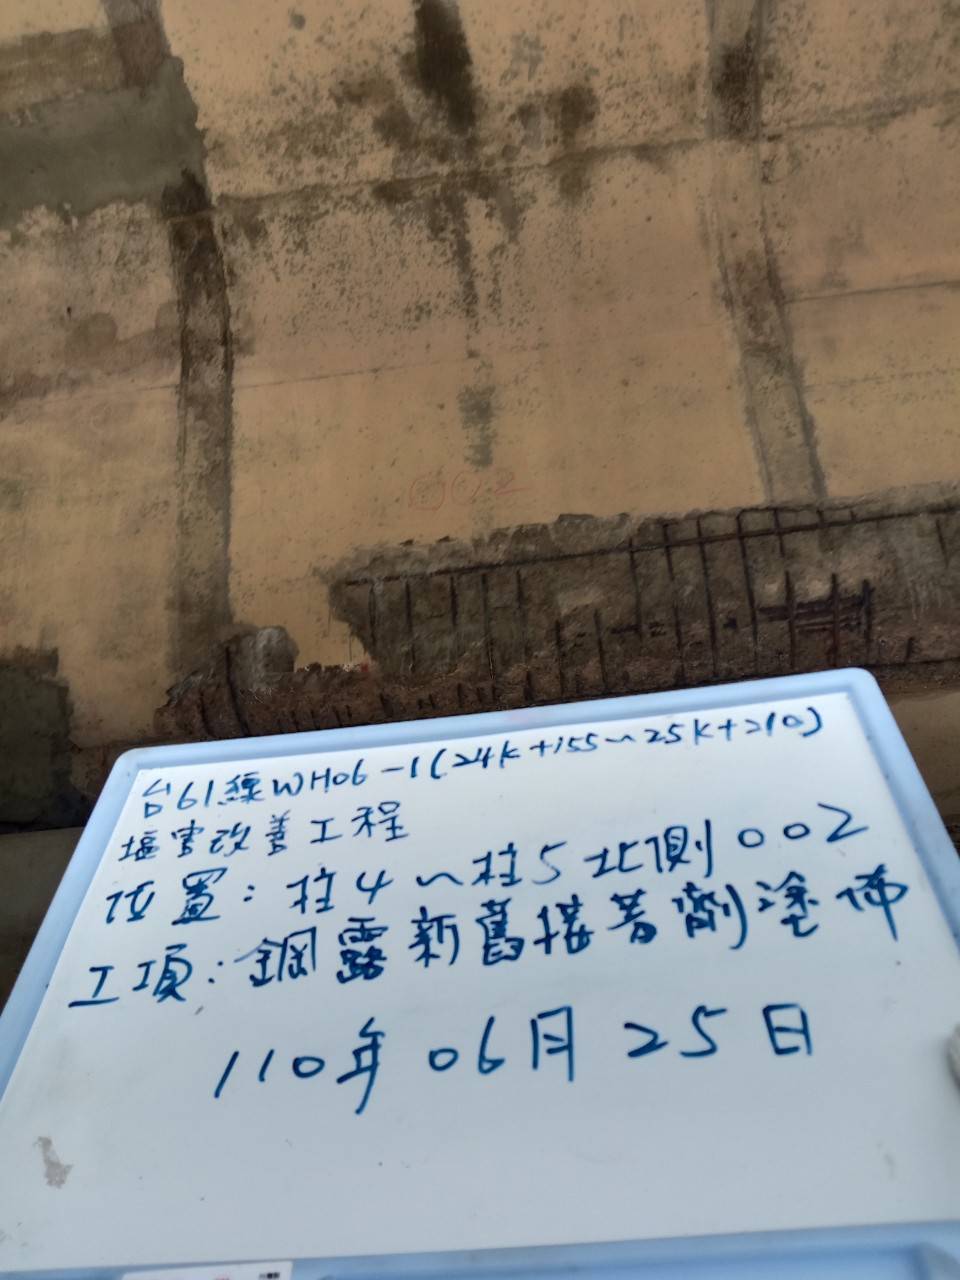 002
台61線WH06-1(24K+155~25K+210)
塩害改善工程
位置:柱4~柱5北側002
工項:鋼露新舊接著劑塗佈
110年06月25日